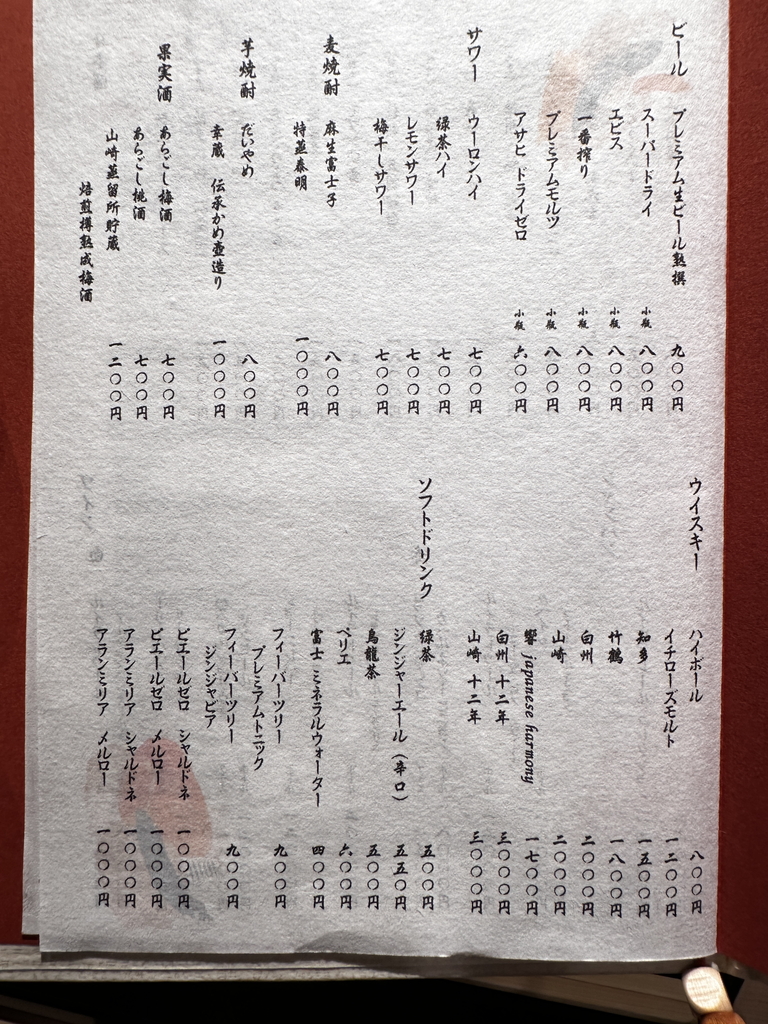 ビール
プレミアム生ビール熟撰 九〇〇円
スーパードライ 小瓶 八〇〇円
エビス 小瓶 八〇〇円
一番搾り 小瓶 八〇〇円
プレミアムモルツ 小瓶 八〇〇円
アサヒ ドライゼロ 小瓶 六〇〇円
サワー
ウーロンハイ 七〇〇円
緑茶ハイ 七〇〇円
レモンサワー 七〇〇円
梅干しサワー 七〇〇円
麦焼酎
麻生富士子 八〇〇円
特蒸泰明 一〇〇〇円
芋焼酎
だいやめ 八〇〇円
幸蔵 伝承かめ壺造り 一〇〇〇円
果実酒
あらごし梅酒 七〇〇円
あらごし桃酒 七〇〇円
山崎蒸留所貯蔵
焙煎樽熟成梅酒 一二〇〇円
ウイスキー
ハイボール 八〇〇円
イチローズモルト 一二〇〇円
知多 一五〇〇円
竹鶴 一八〇〇円
白州 二〇〇〇円
山崎 二〇〇〇円
響 japanese harmony 一七〇〇円
白州 十二年 三〇〇〇円
山崎 十二年 三〇〇〇円
ソフトドリンク
緑茶 五〇〇円
ジンジャーエール（辛口） 五五〇円
烏龍茶 五〇〇円
ペリエ 六〇〇円
富士 ミネラルウォーター 四〇〇円
フィーバーツリー
プレミアムトニック 九〇〇円
フィーバーツリー
ジンジャビア 九〇〇円
ピエールゼロ シャルドネ 一〇〇〇円
ピエールゼロ メルロー 一〇〇〇円
アランミリア シャルドネ 一〇〇〇円
アランミリア メルロー 一〇〇〇円